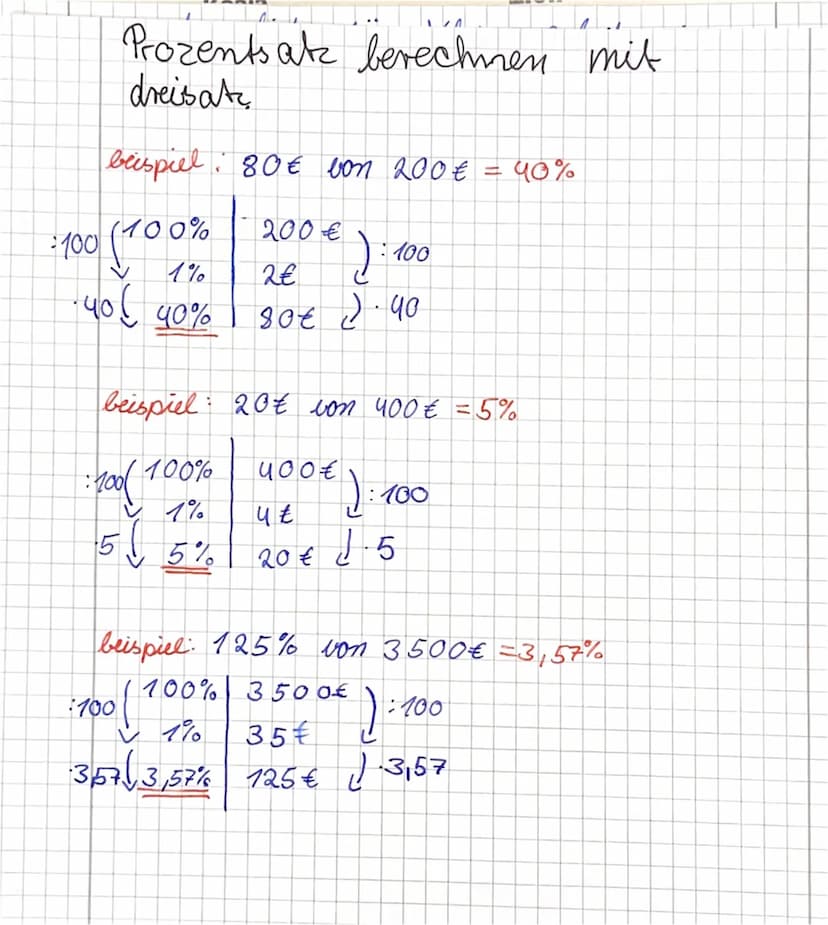 Prozentsatz berechnen mit
dreisatz
beispiel: 80€ von 200€ = 40%
:100 100% 200€ :100
1% 2€
·40 40% 80€ ·40
beispiel: 20€ von 400€ = 5%
:100 100% 400€ :100
1% 4€
·5 5% 20€ ·5
beispiel: 125% von 3500€ = 3,57%
:100 100% 3500€ :100
1% 35€
·3,57 3,57% 125€ ·3,57